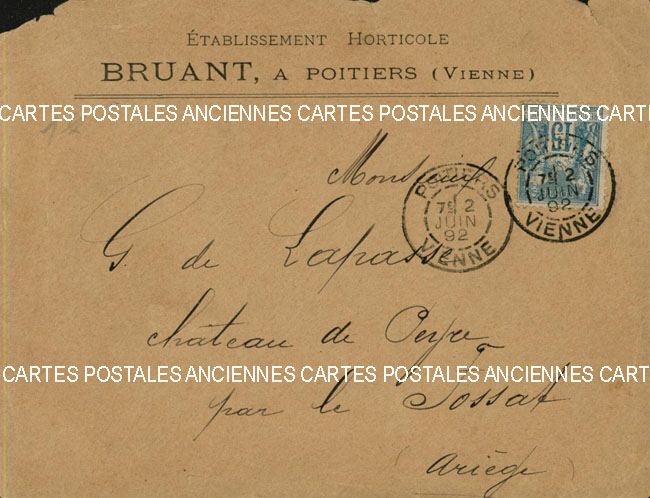 ÉTABLISSEMENT HORTICOLE
BRUANT, A POITIERS (VIENNE)
CARTES POSTALES ANCIENNES CARTES POSTALES ANCIENNES CARTE
15
POITIERS
7E 2
JUIN
92
VIENNE
Monsieur
POITIERS
7E 2
JUIN
92
VIENNE
G. de Lapasse
château de
CARTES POSTALES ANCIENNES CARTES POSTALES ANCIENNES CARTE
par le Fossat
(Ariège)